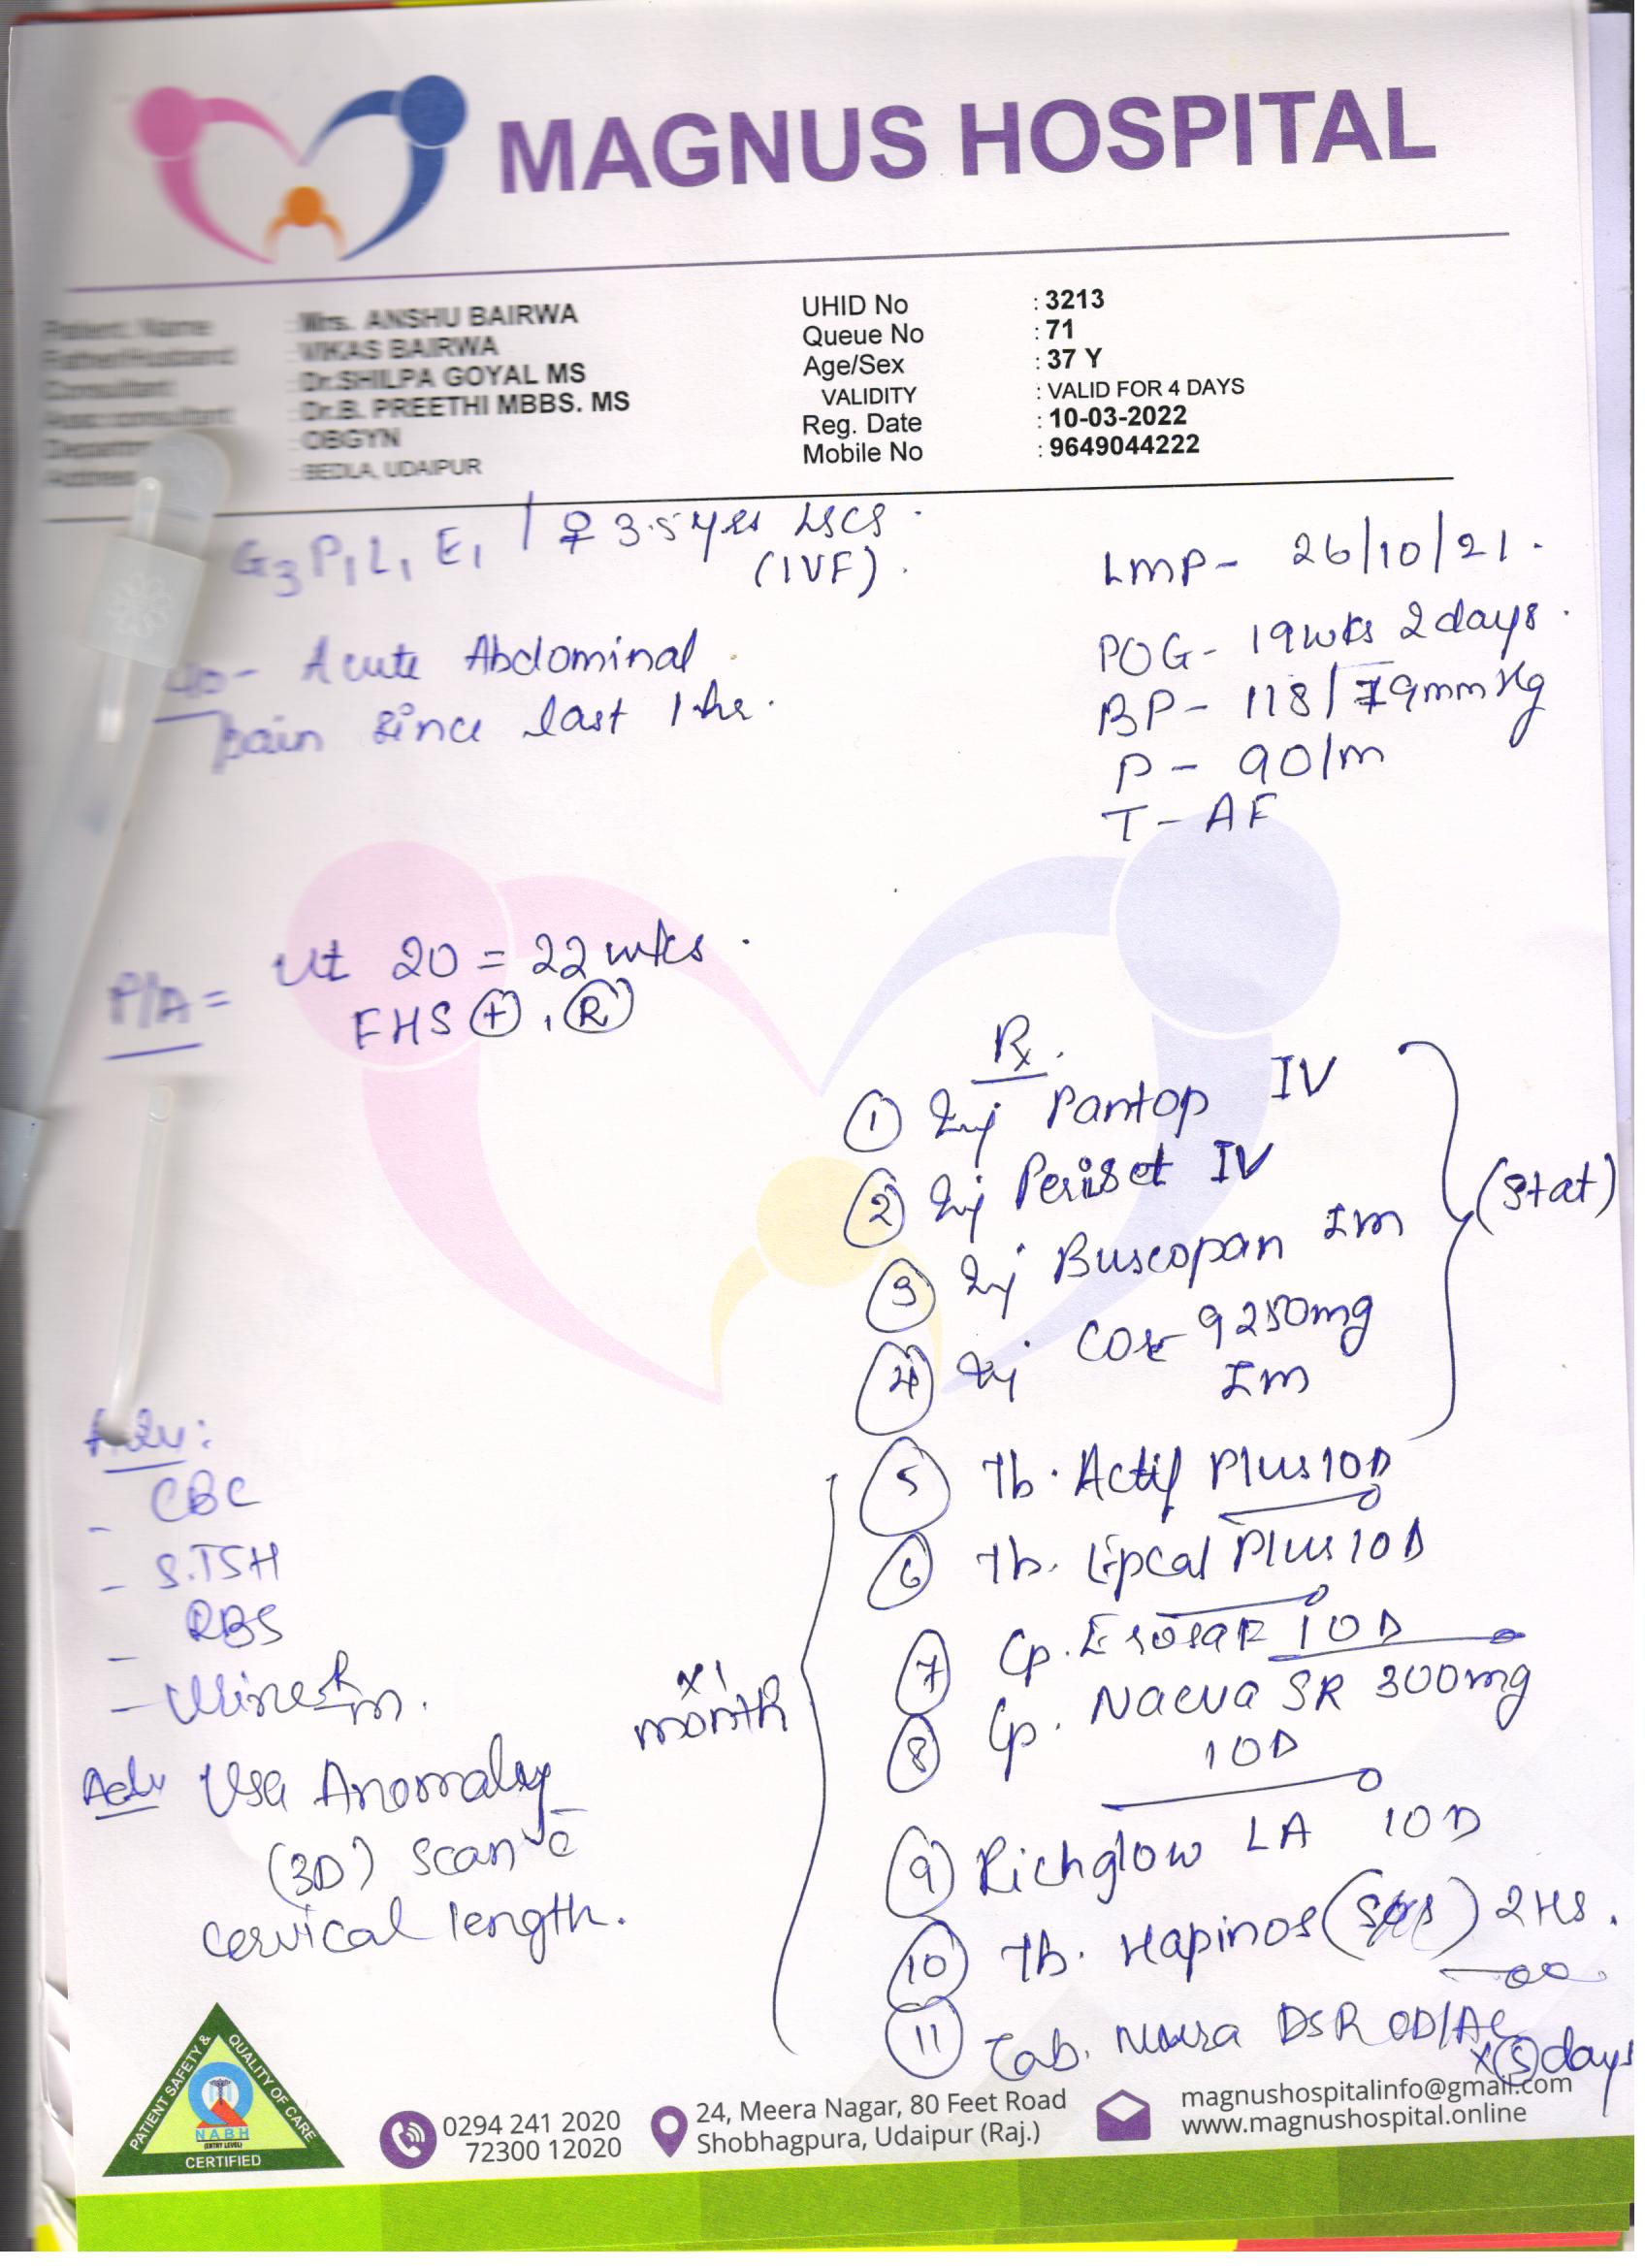 MAGNUS HOSPITAL
Patient Name : Mrs. ANSHU BAIRWA
Father/Husband : VIKAS BAIRWA
Consultant : Dr.SHILPA GOYAL MS
Asso consultant : Dr.B. PREETHI MBBS. MS
: OBGYN
Address : BEDLA, UDAIPUR
UHID No : 3213
Queue No : 71
Age/Sex : 37 Y
VALIDITY : VALID FOR 4 DAYS
Reg. Date : 10-03-2022
Mobile No : 9649044222
G3P1L1E1 / ♀ 3.5 yrs LSCS
(IVF).
Acute Abdominal
pain since last 1 hr.
LMP- 26/10/21.
POG- 19wks 2days.
BP- 118/79mmHg
P- 90/m
T- AF
P/A = Ut 20 = 22 wks.
FHS (+), (R)
Rx.
① Inj Pantop IV
② Inj Periset IV
③ Inj Buscopan Im
④ Inj 250mg
Im
(Stat)
⑤ Tb. Actif Plus 10D
⑥ Tb. Lipcal Plus 10D
⑦ Cp. 10D
⑧ Cp. SR 300mg
10D
⑨ Richglow LA 10D
⑩ Tb. Hapinos 2HS.
⑪ Tab. DSR OD/AC
x ⑤ days
x 1
month
- CBC
- S.TSH
- RBS
- Urine R/m.
Adv USG Anomaly
(3D) scan c̄
cervical length.
PATIENT SAFETY & QUALITY OF CARE
NABH
(ENTRY LEVEL)
CERTIFIED
0294 241 2020
72300 12020
24, Meera Nagar, 80 Feet Road
Shobhagpura, Udaipur (Raj.)
magnushospitalinfo@gmail.com
www.magnushospital.online